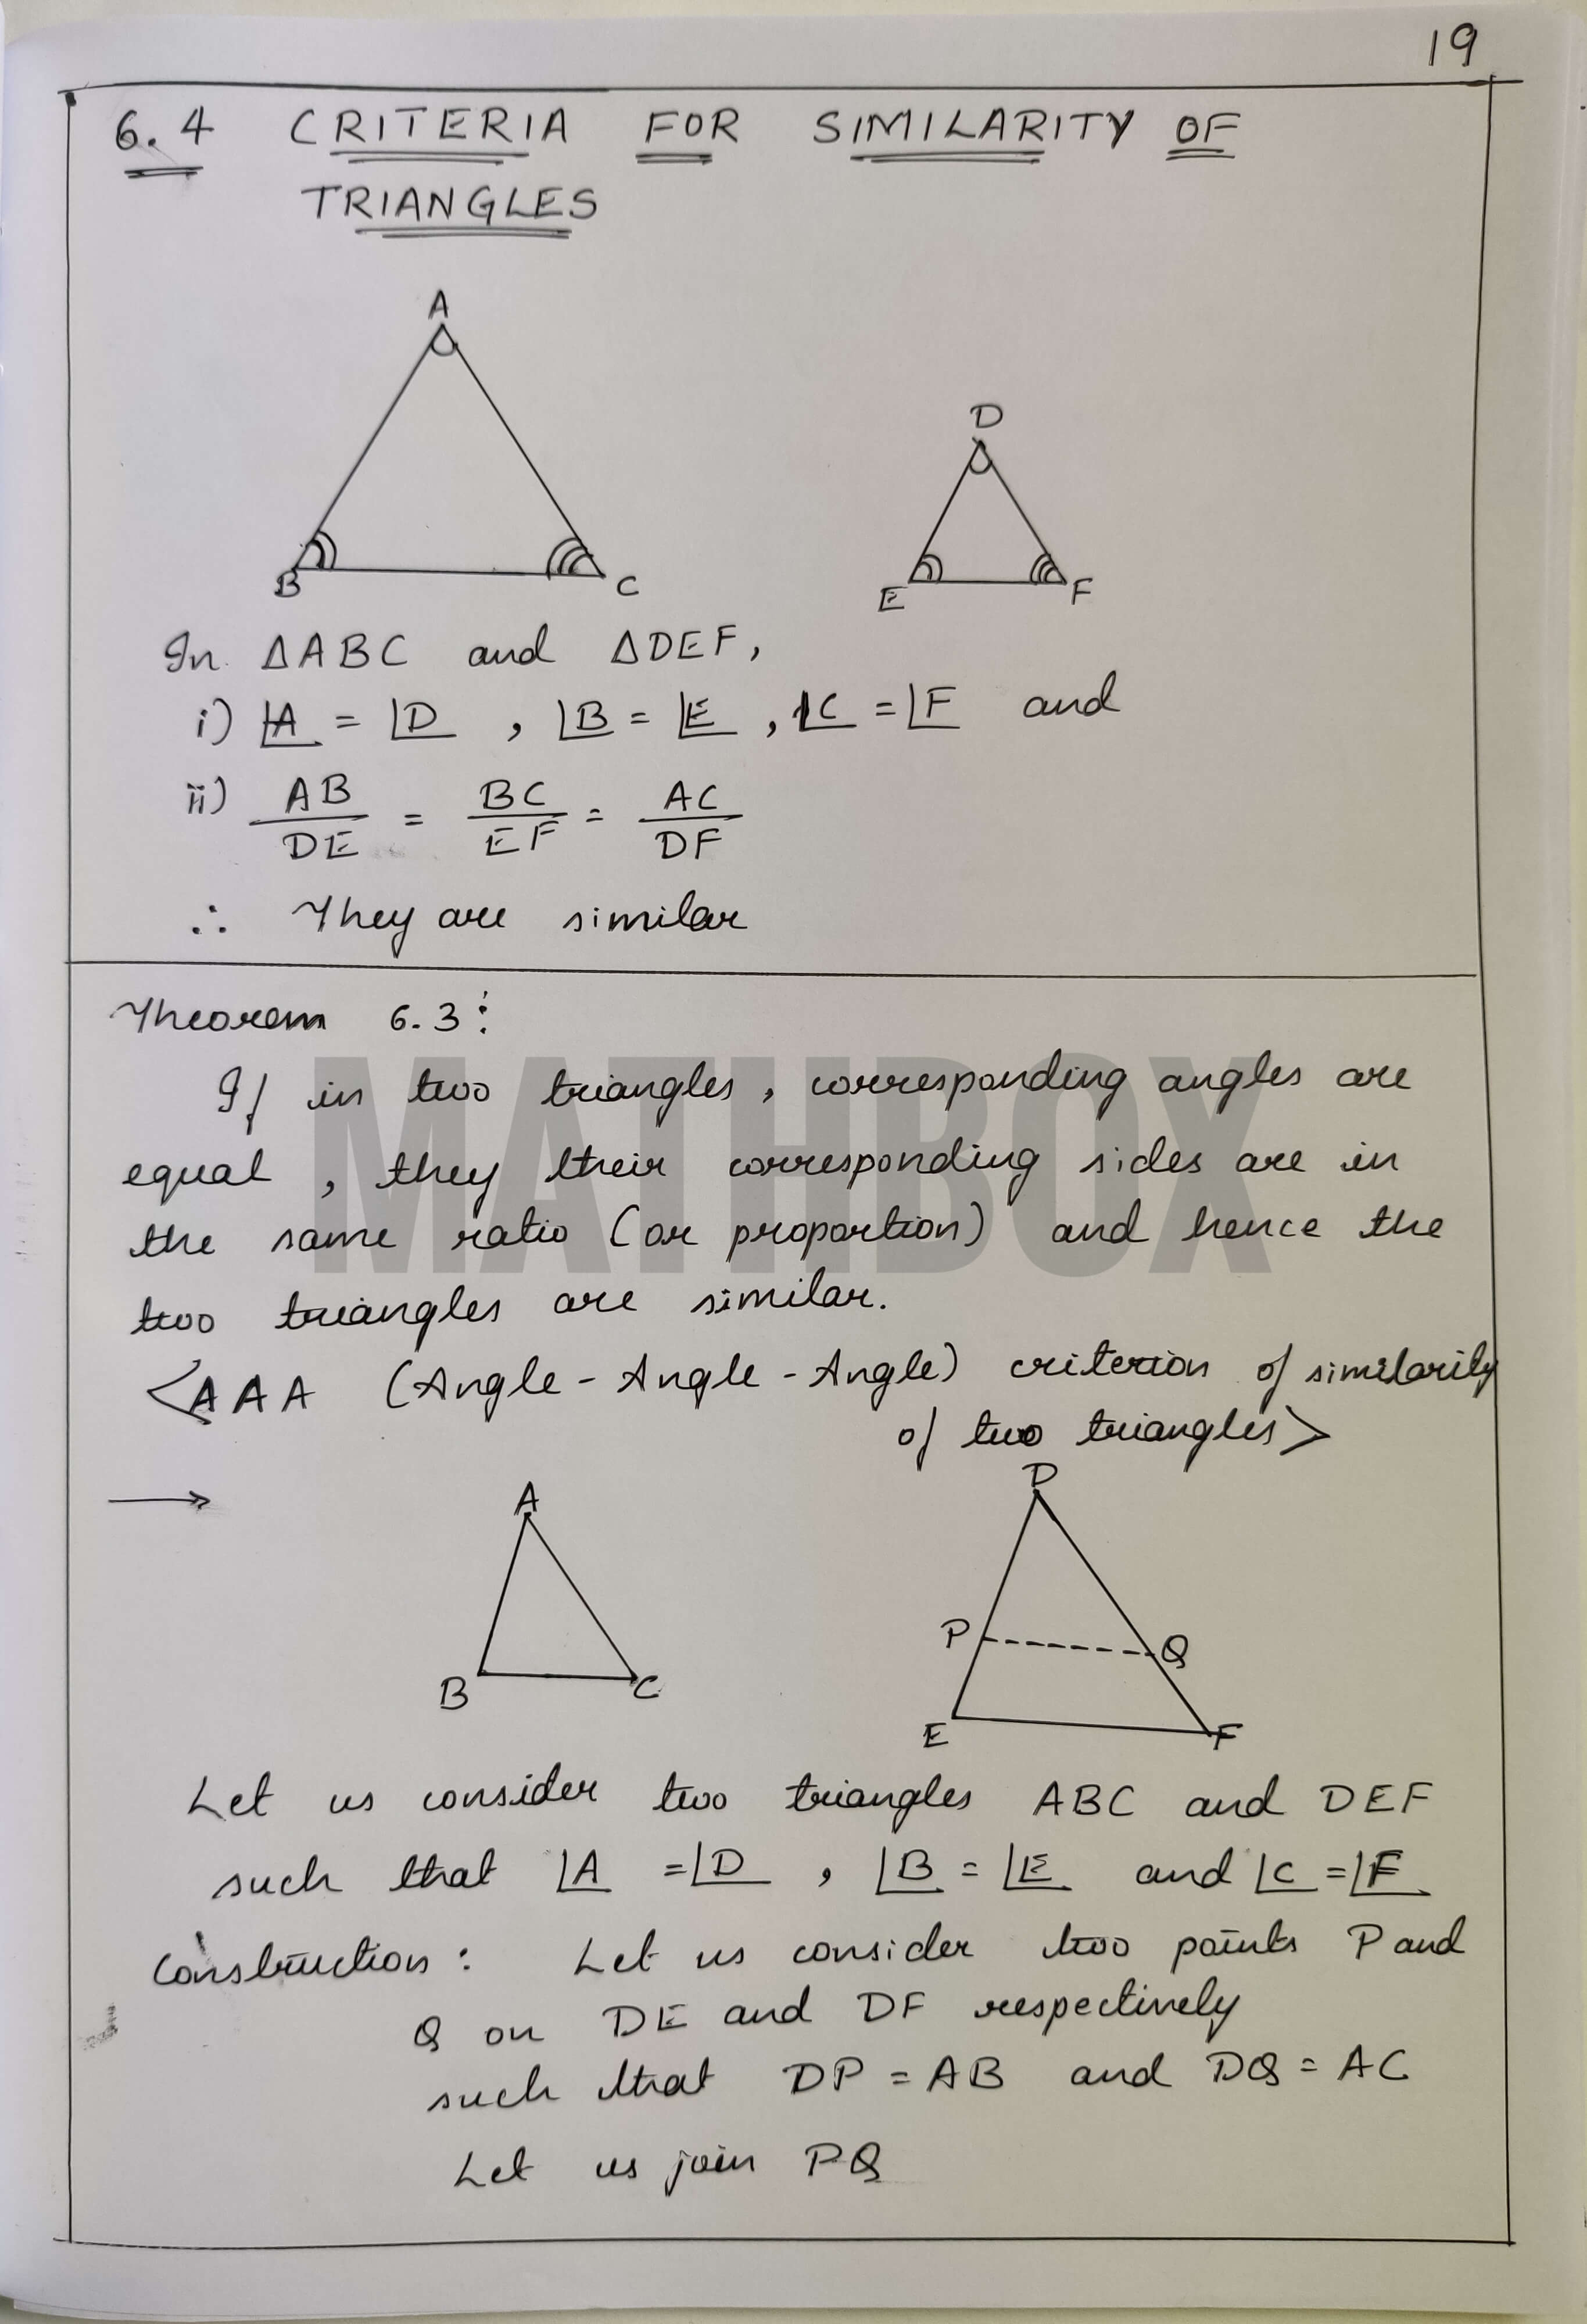 19
6.4 CRITERIA FOR SIMILARITY OF
TRIANGLES
A
D
B
C
E
F
In ΔABC and ΔDEF,
i) ∠A = ∠D , ∠B = ∠E , ∠C = ∠F and
ii) AB/DE = BC/EF = AC/DF
∴ They are similar
Theorem 6.3:
If in two triangles, corresponding angles are
equal, they their corresponding sides are in
the same ratio (or proportion) and hence the
two triangles are similar.
<AAA (Angle - Angle - Angle) criterion of similarity
of two triangles>
MATHBOX
→
A
D
P
Q
B
C
E
F
Let us consider two triangles ABC and DEF
such that ∠A = ∠D , ∠B = ∠E and ∠C = ∠F
Construction: Let us consider two points P and
Q on DE and DF respectively
such that DP = AB and DQ = AC
Let us join PQ